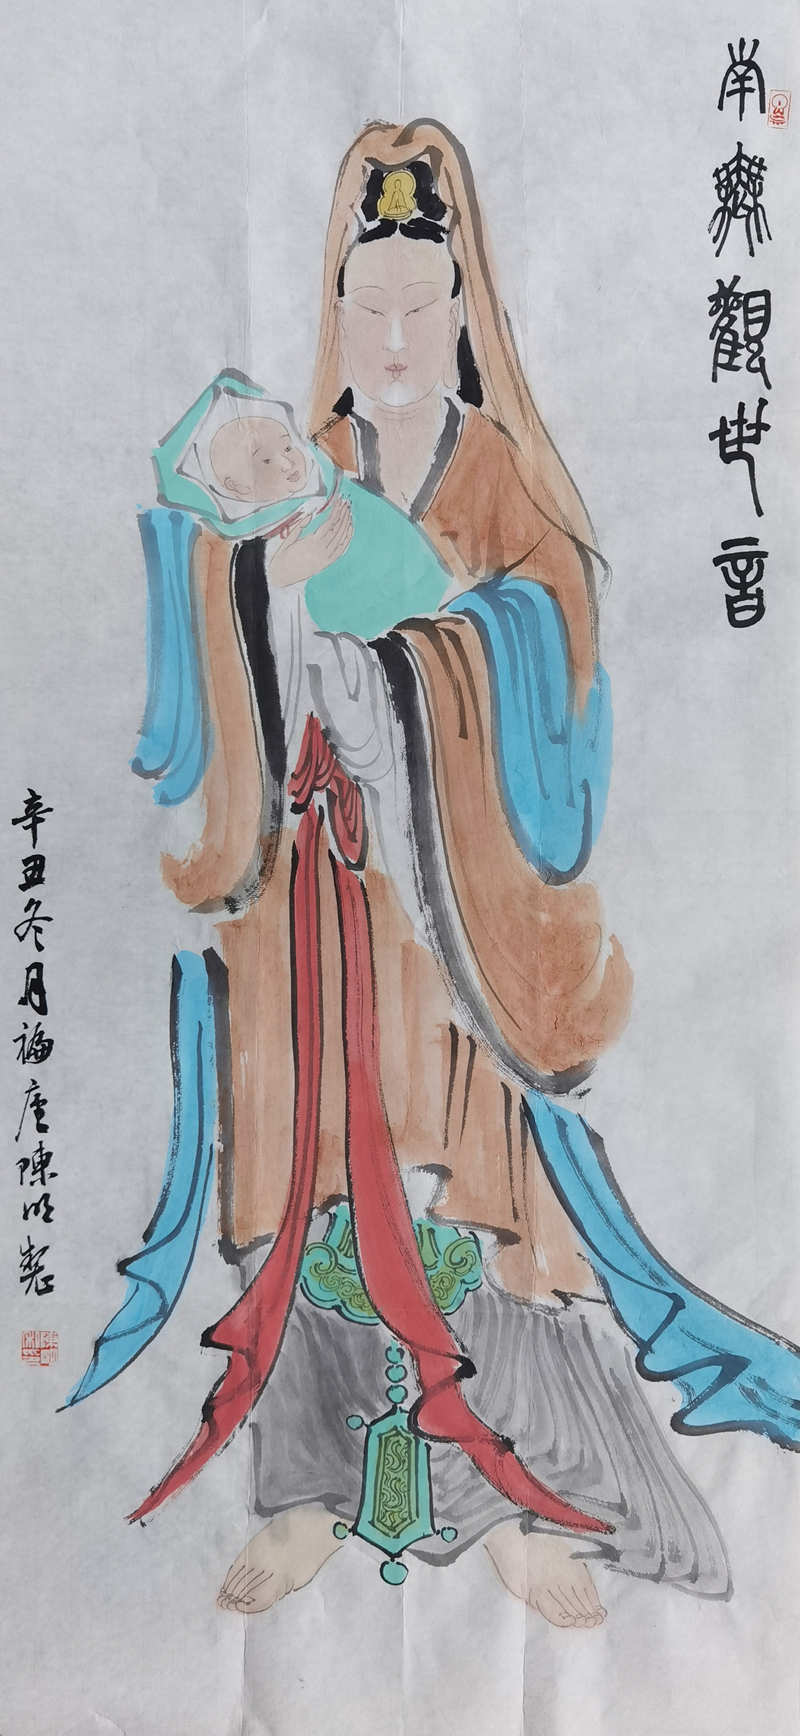 南無觀世音
辛丑冬月福廬陳明製